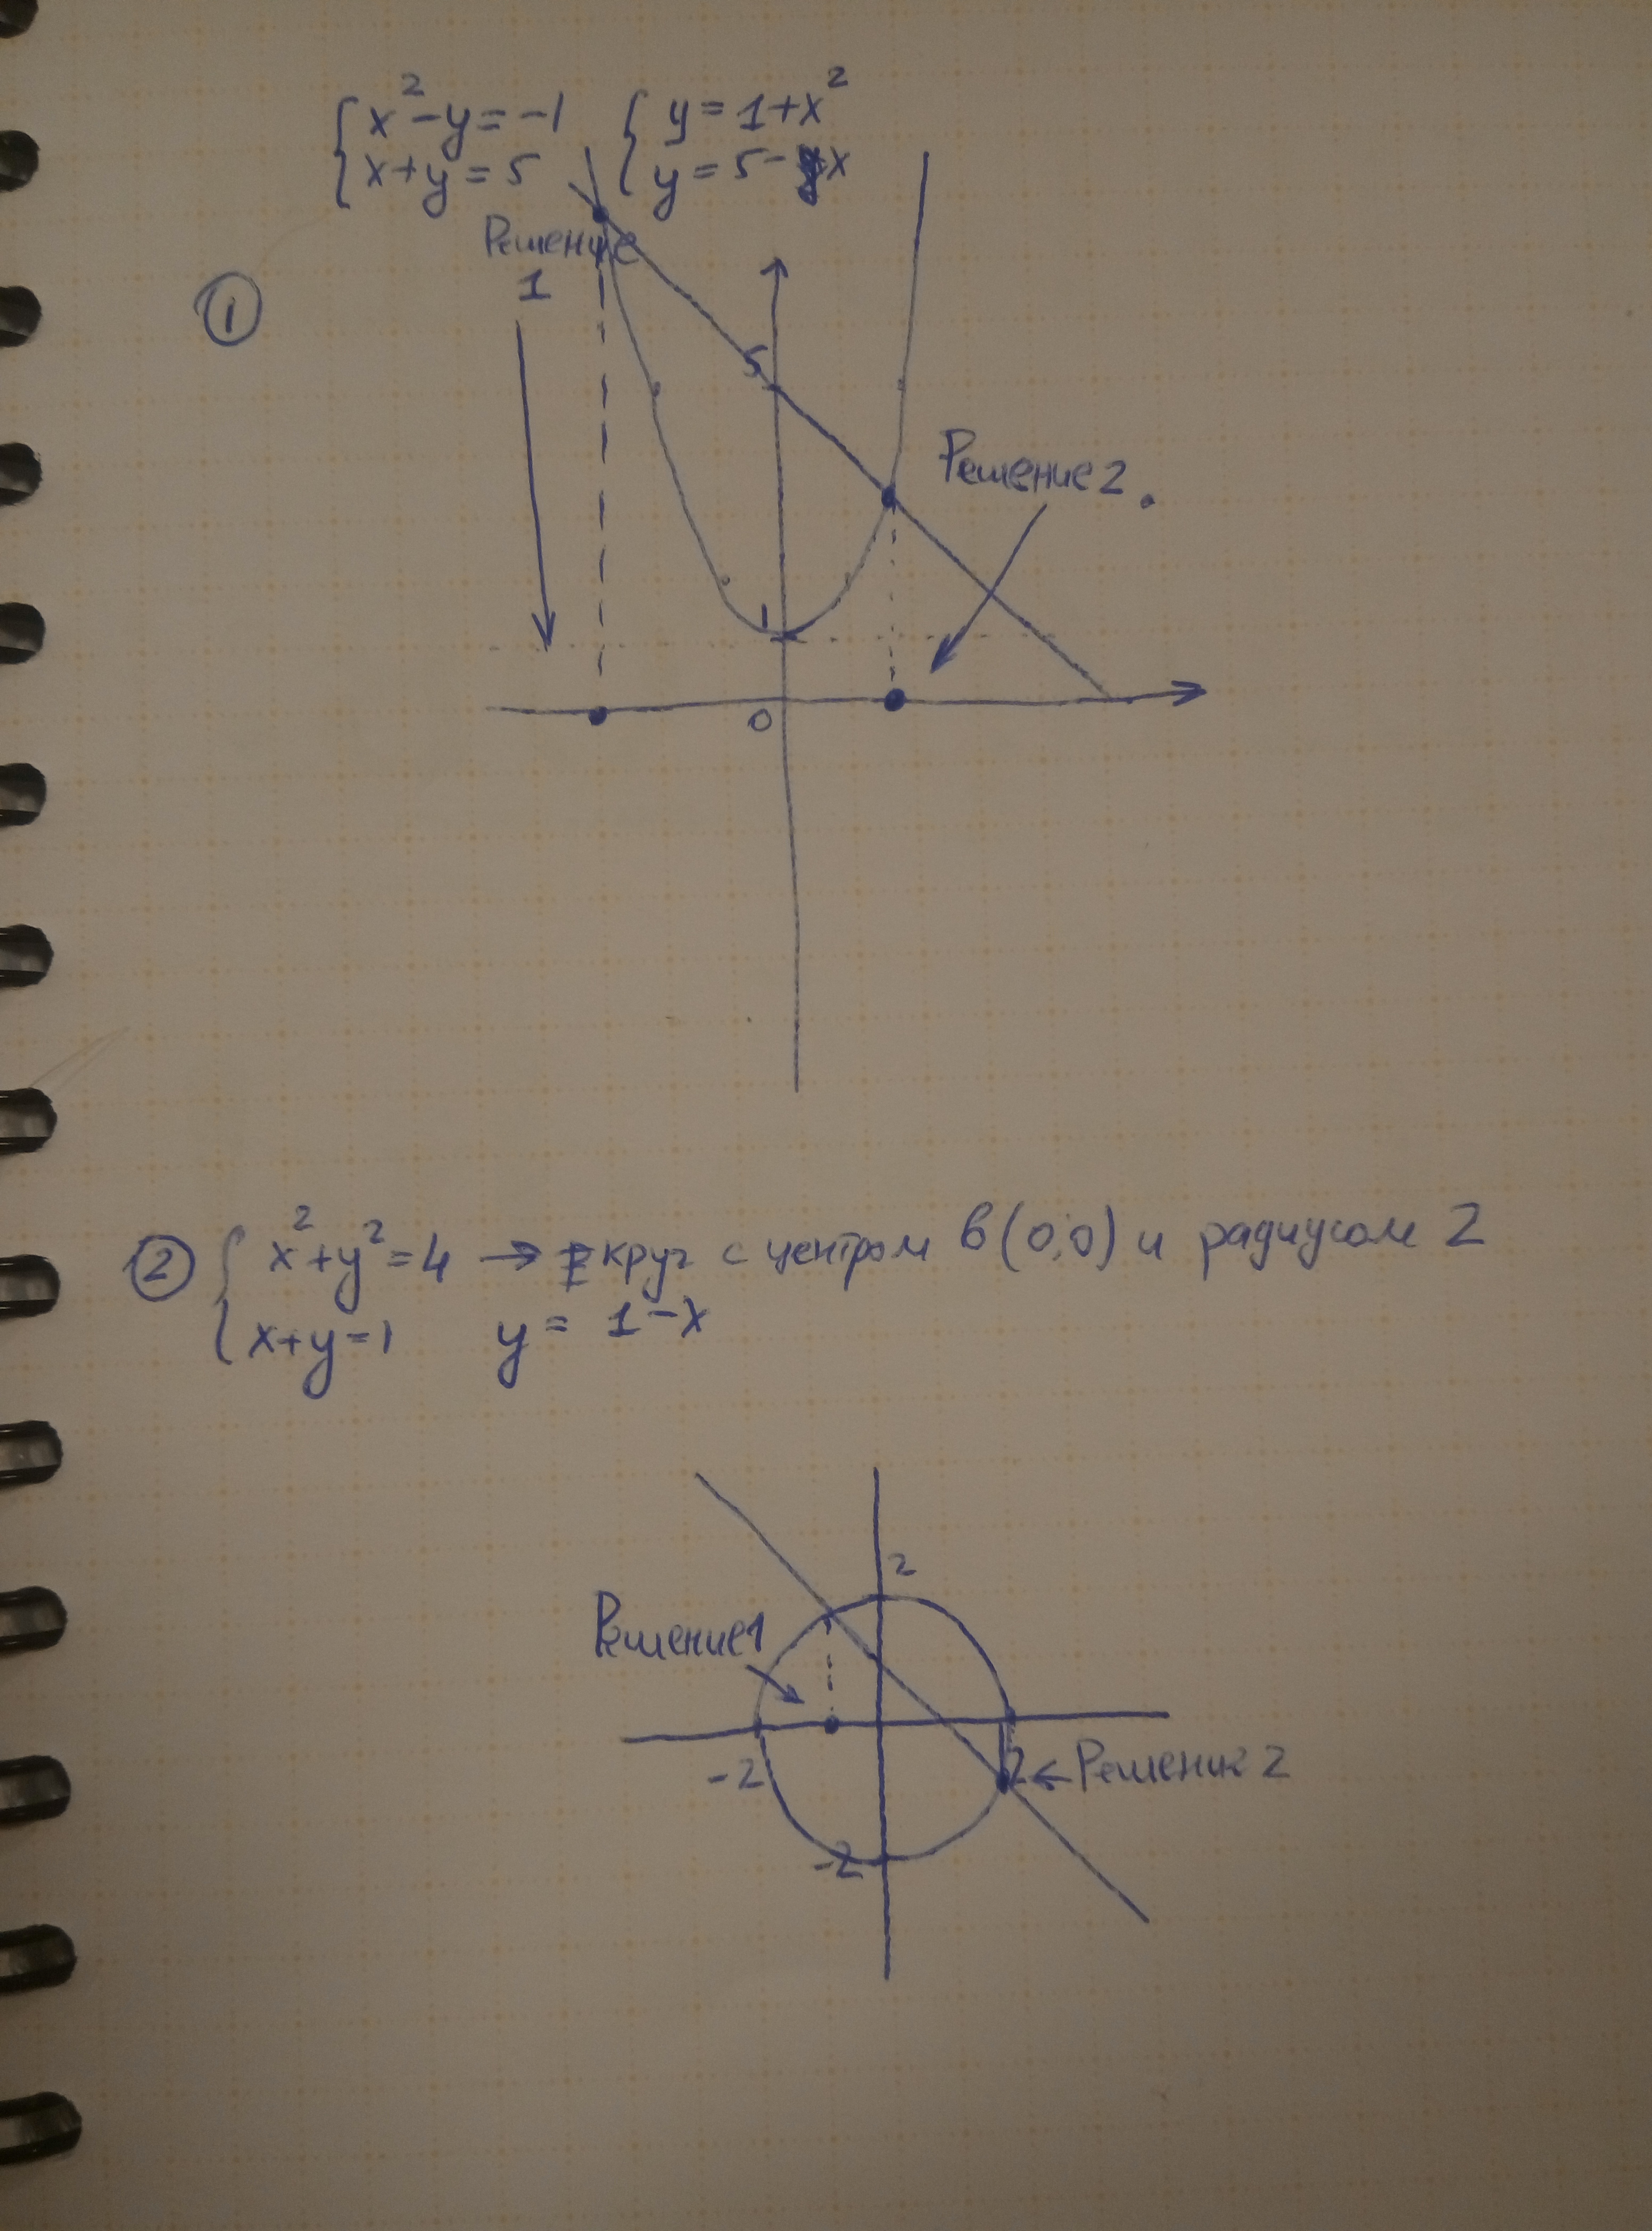 { x² - y = -1 { y = 1 + x²
x + y = 5 y = 5 - x
Решение
1
①
5
Решение 2.
1
0
② { x² + y² = 4 → круг с центром в (0;0) и радиусом 2
x + y = 1 y = 1 - x
2
Решение 1
-2 2 ← Решение 2
-2